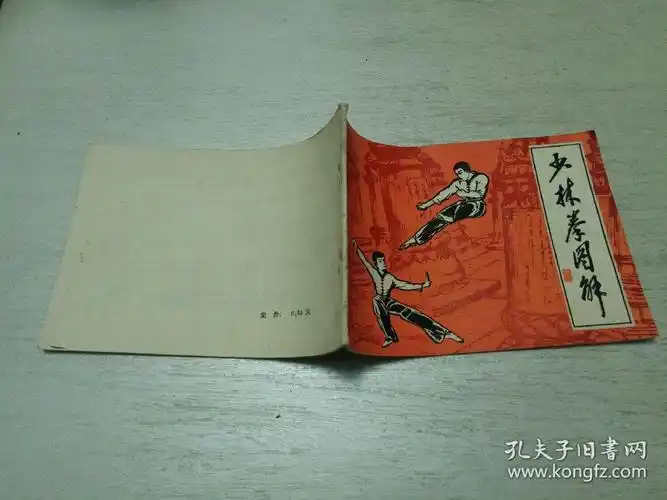 少林拳图解
定价：0.34元
孔夫子旧书网
www.kongfz.com